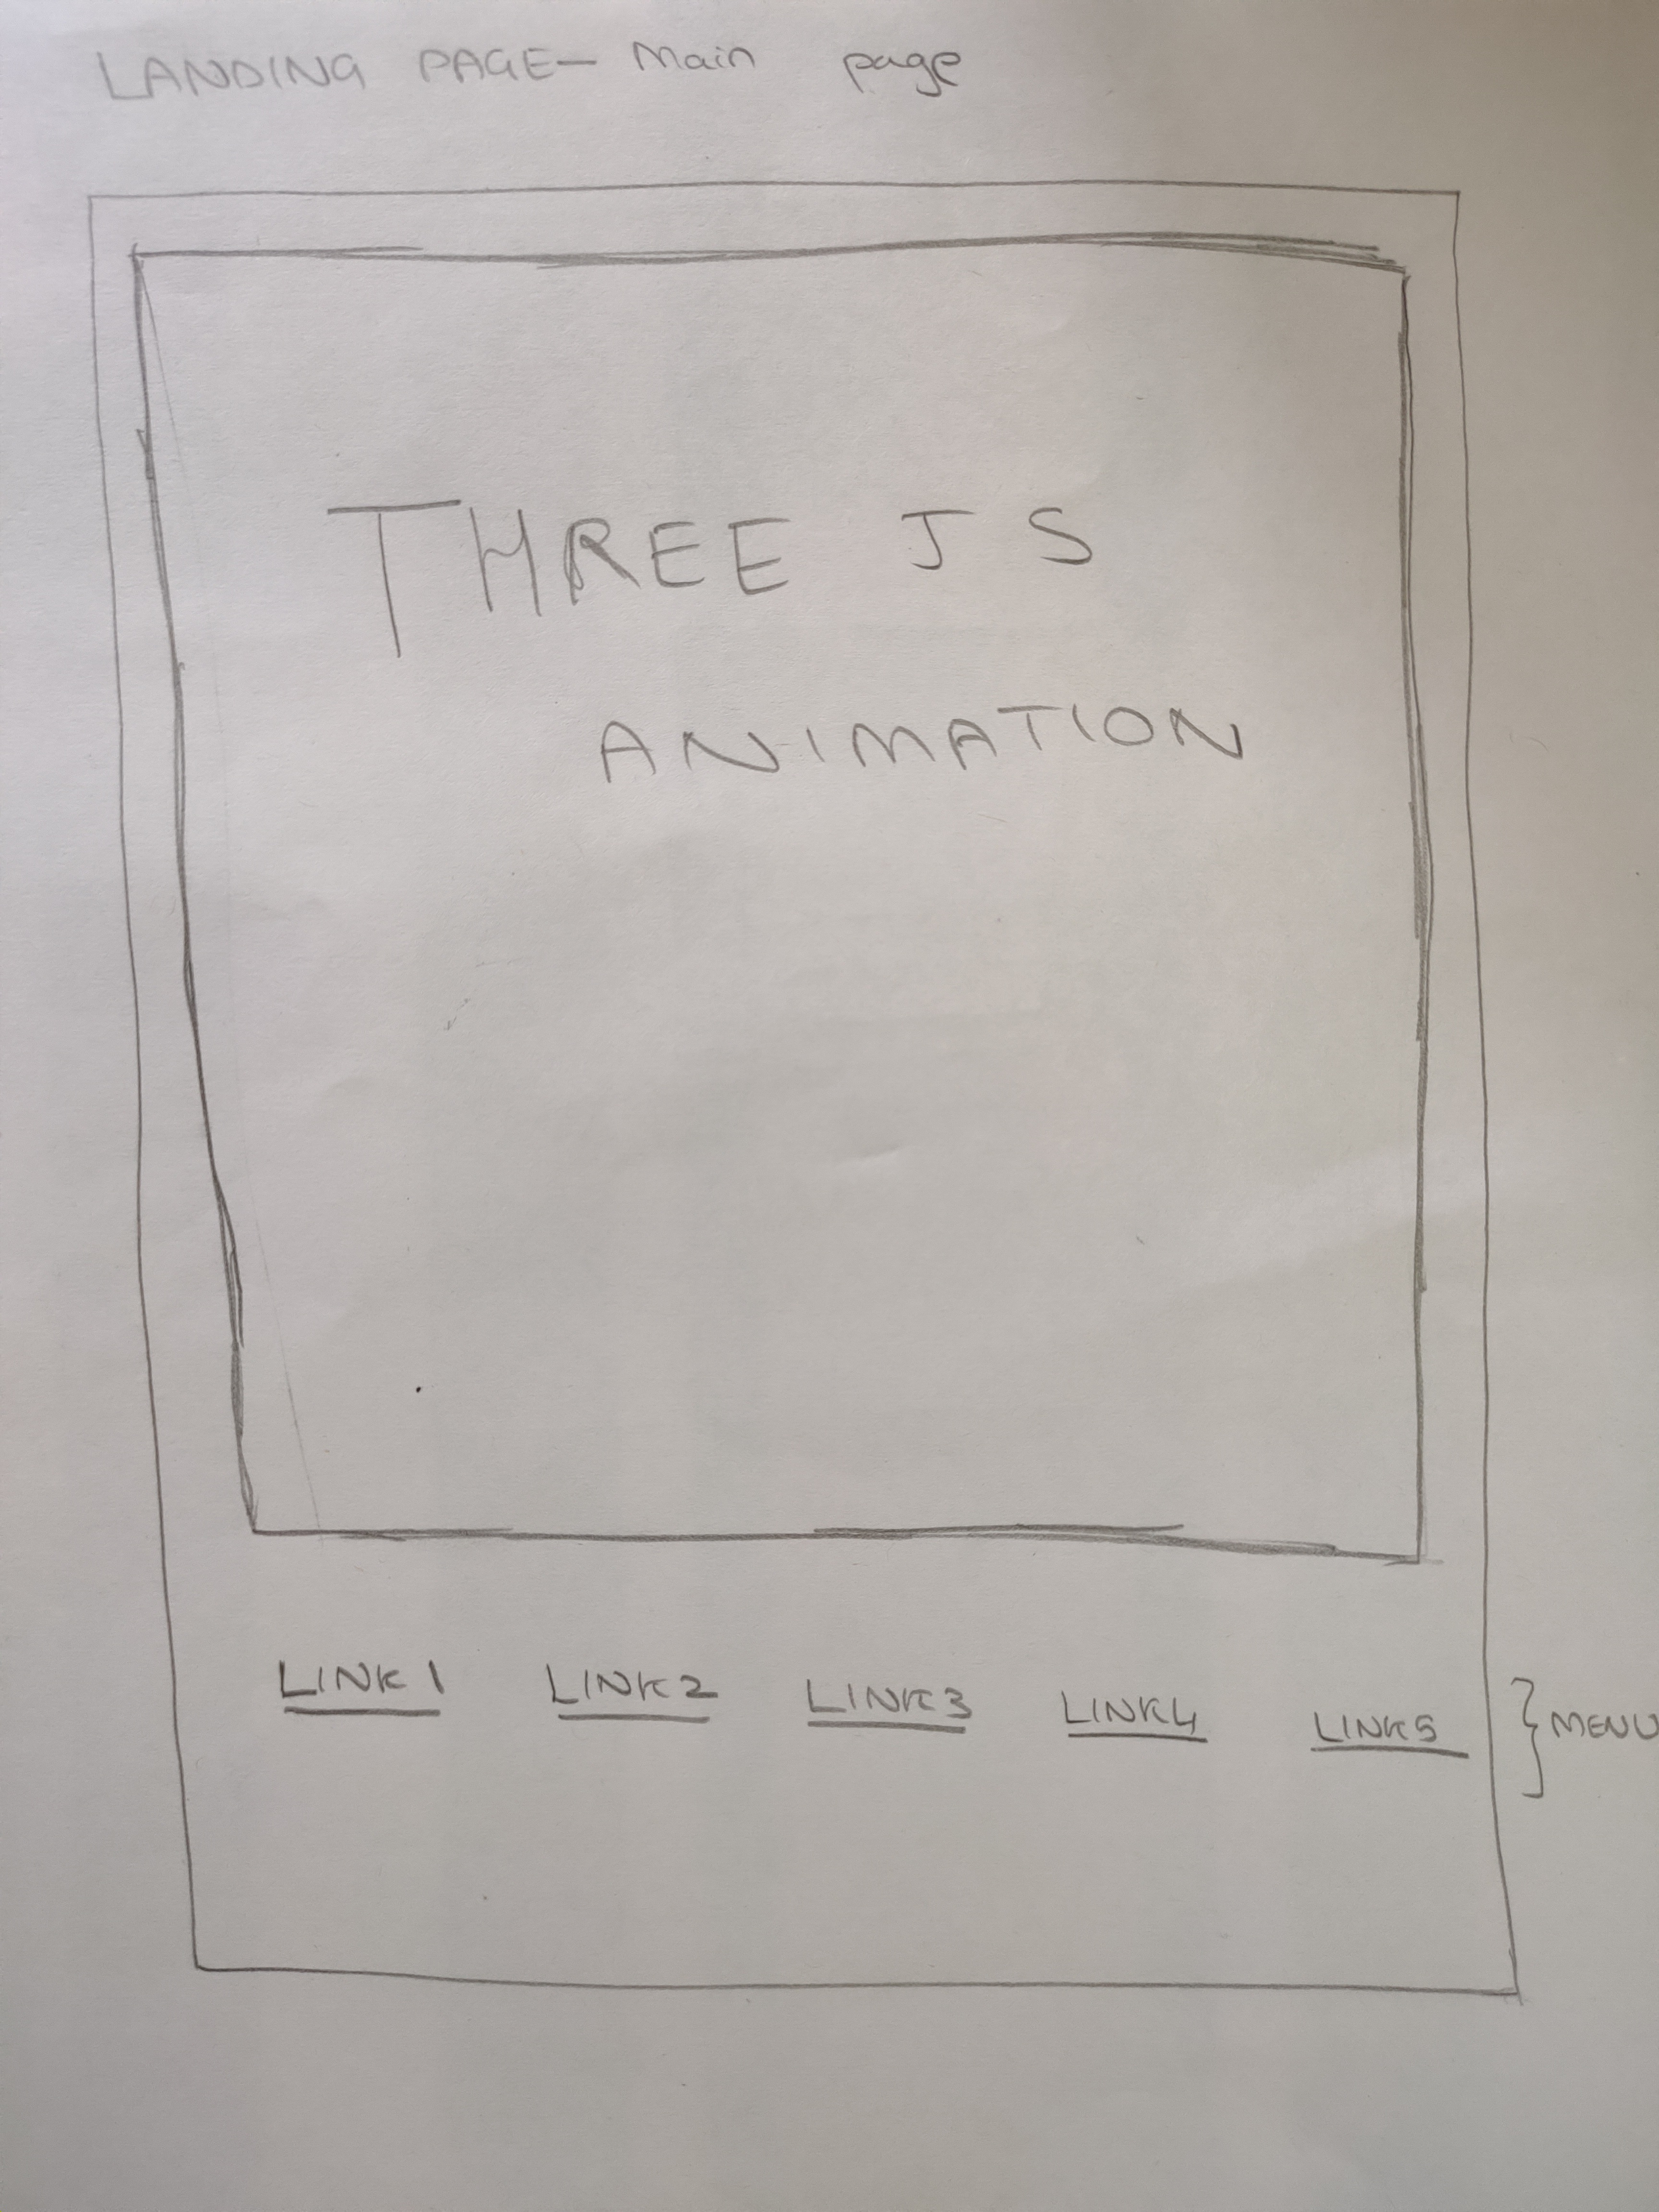 LANDING PAGE— Main page
THREE JS
ANIMATION
LINK1 LINK2 LINK3 LINK4 LINK5 } MENU